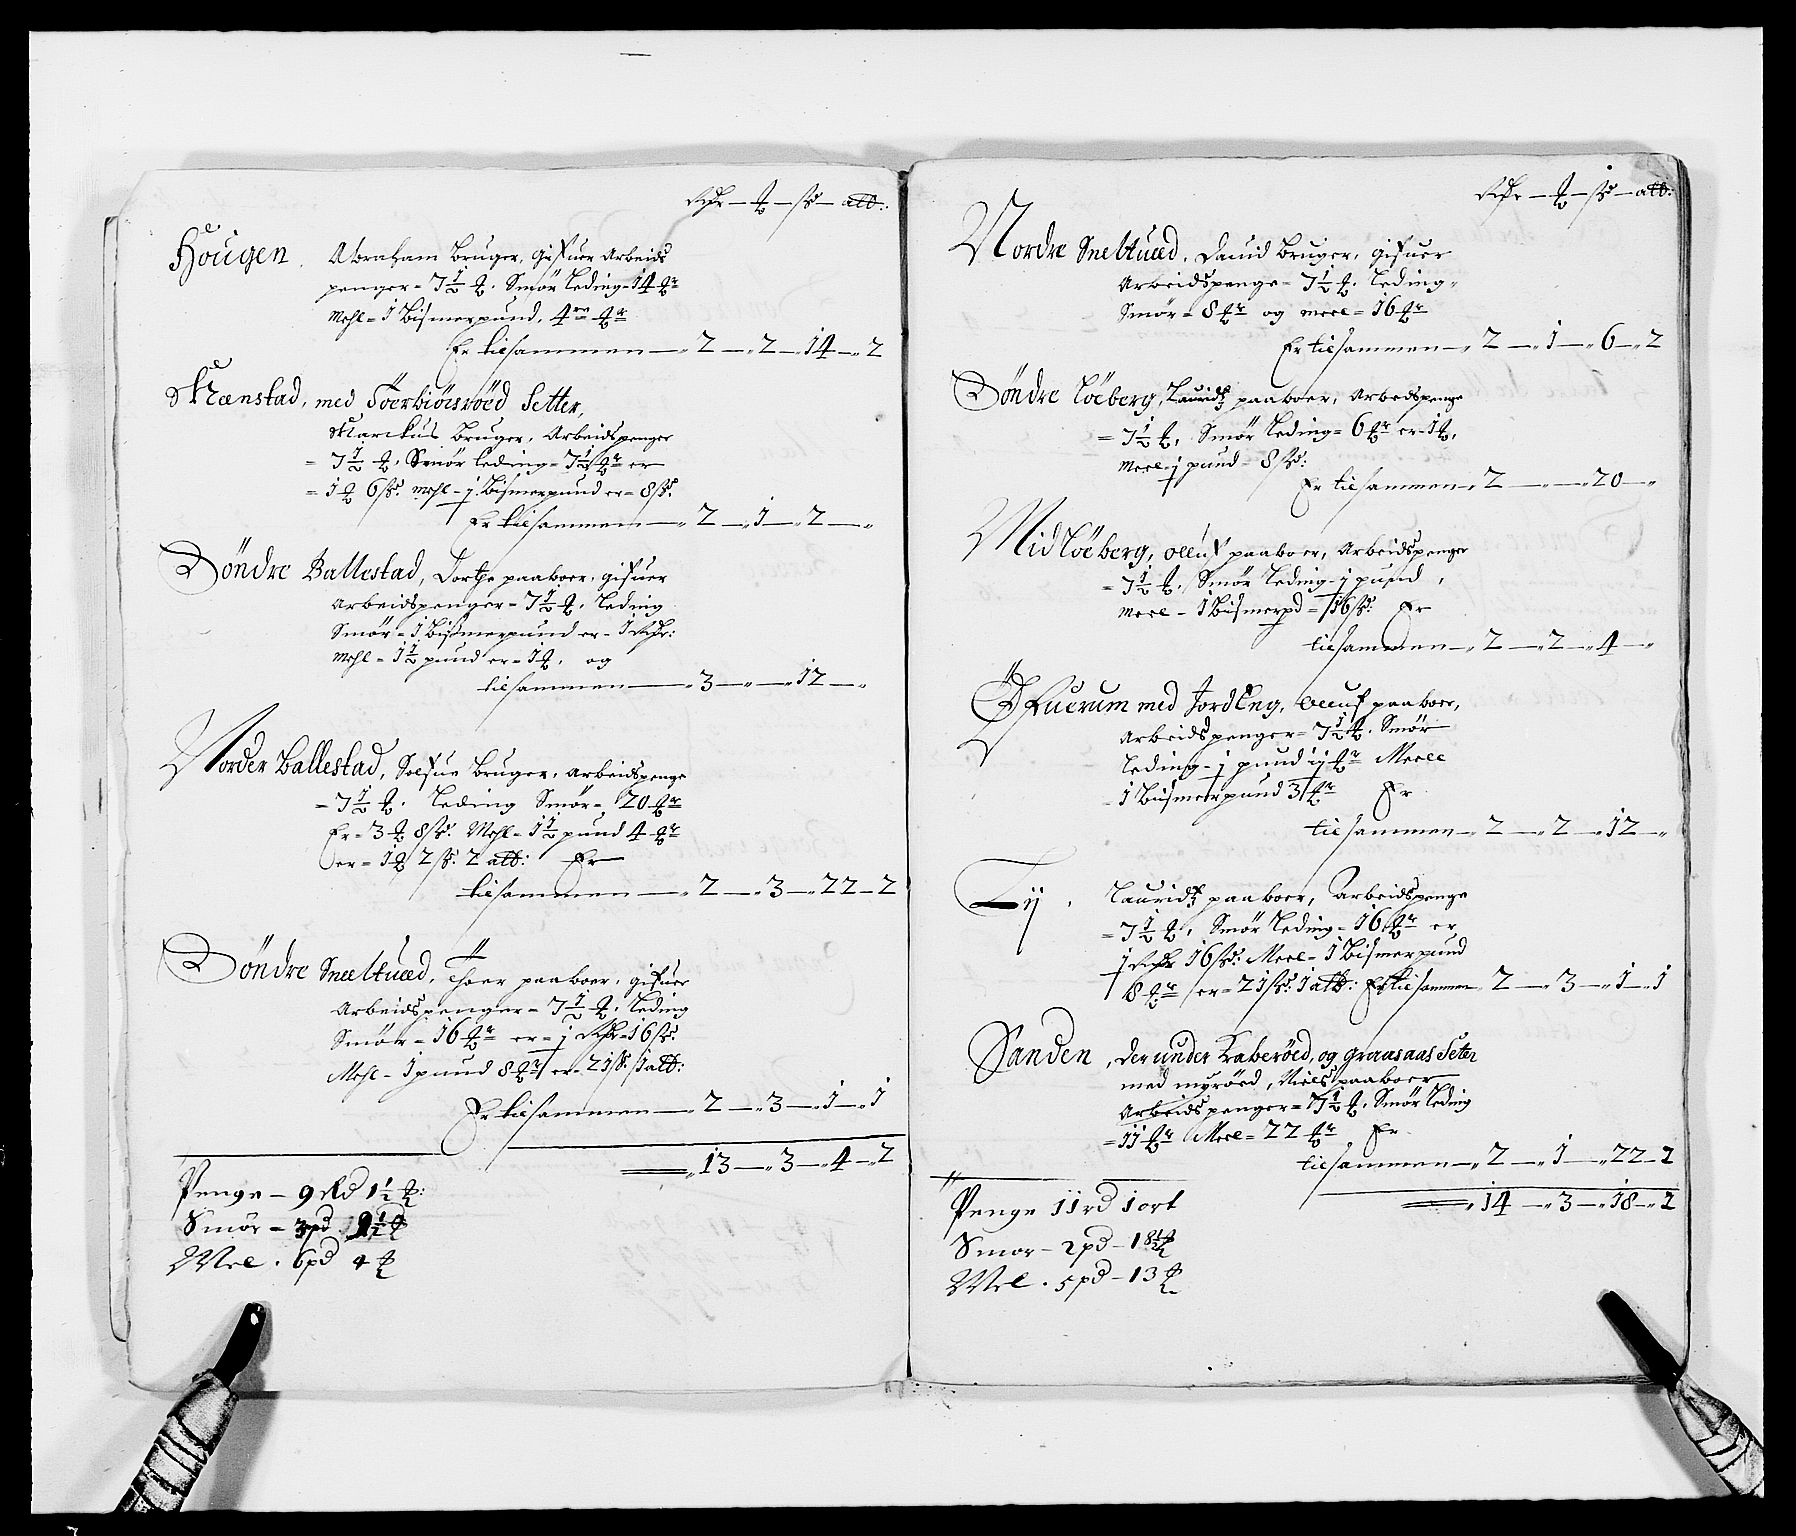 Rdr — ℔ — ß — alb:
Hougen. Abraham Bruger, gifuer Arbeids
penger = 7½ ℔. Smør Leding = 14 ℔r
Mehl = 1 Bismerpund, 4 ℔r
Er tilsammen — 2 — 2 — 14 — 2
Mænstad, med Toerbiörsröed Setter,
Markus Bruger, Arbeidspenger
= 7½ ℔. Smør leding = 7½ ℔r er
= 1 ℔ 6 ß. mehl - j Bismerpund er = 8 ß.
Er tilsammen — 2 — 1 — 2 —
Söndre Ballestad, Dortje paaboer, gifuer
Arbeidspenger = 7½ ℔. Leding
Smør = 1 Bismerpund er = 1 Rdr:
Mehl = 1½ pund er = 1 ℔. og
tilsammen — 3 — — 12 —
Norder Ballestad, Solfue Bruger, Arbeidspenge
= 7½ ℔. Leding Smør = 20 ℔r
Er = 3 ℔ 8 ß. Mehl = 1½ pund 4 ℔r
er = 1 ℔ 2 ß. 2 alb: Er
tilsammen — 2 — 3 — 22 — 2
Söndre Sneltued, Thoer paaboer, gifuer
Arbeidspenger = 7½ ℔. Leding
Smør = 16 ℔r er = j Rdr = 16 ß.
Mehl - 1 pund 8 ℔r er = 21 ß. 1 alb:
Er tilsammen — 2 — 3 — 1 — 1
13 — 3 — 4 — 2
Penge — 9 Rd 1½ ℔:
Smör — 3 pd 9½ ℔
Mel . 6 pd 4 ℔
Rdr — ℔ — ß — alb:
Nordre Sneltued, Dauid Bruger, gifuer
Arbeidspenge = 7½ ℔. Leding =
Smør = 8 ℔r og meel = 16 ℔r
Er tilsammen — 2 — 1 — 6 — 2
Söndre Löeberg, Lauridz paaboer, Arbedspenge
= 7½ ℔. Smør Leding = 6 ℔r er = 1 ℔.
Meel - j pund = 8 ß:
Er tilsammen — 2 — — 20 —
Mid Löeberg, Oeluf paaboer, Arbeidspenger
= 7½ ℔. Smør Leding - j pund,
meel - 1 Bismerpd = 16 ß: Er
tilsammen — 2 — 2 — 4 —
Öfuerum med Jord Eng, Oeluf paaboer,
Arbeidspenger = 7½ ℔. Smør
Leding - j pund ij ℔r Meell
= 1 Bismerpund 3 ℔r Er
tilsammen — 2 — 2 — 12 —
Lij. Lauridz paaboer, Arbeidspenge
= 7½ ℔. Smør Leding = 16 ℔r er
j Rdr 16 ß. Meel - 1 Bismerpund
8 ℔r er = 21 ß. 1 alb: Er tilsammen 2 — 3 — 1 — 1
Sanden, der under Kaberöed, og graasaas Seter
med myröed, Niels paaboer
Arbeidspenger = 7½ ℔. Smør Leding
= 11 ℔r Meel = 22 ℔r Er
tilsammen — 2 — 1 — 22 — 2
14 — 3 — 18 — 2
Penge 11 rd 1 ort
Smor — 2 pd — 18½ ℔
Mel . 5 pd — 13 ℔